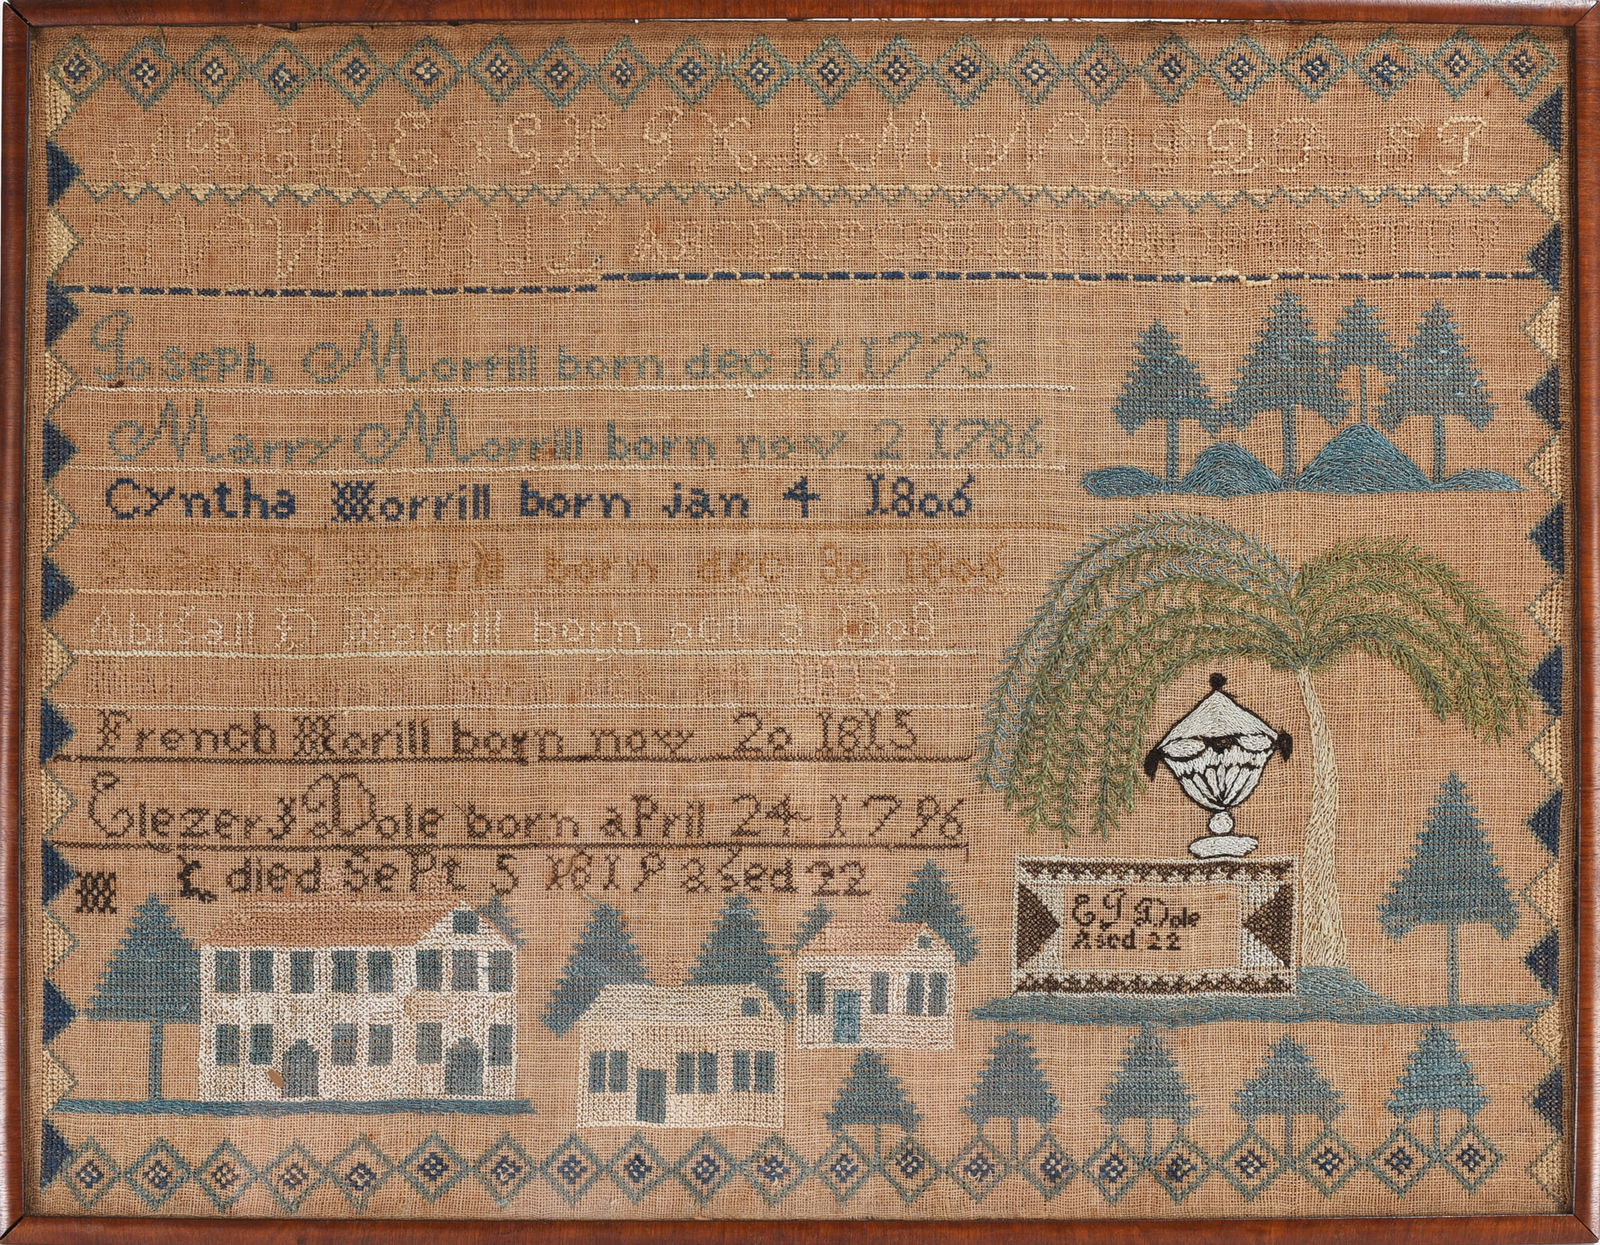 A B C D E F G H I K L M N O P Q R S T
U V W X Y Z A B C D E F G H I
Joseph Morrill born dec 16 1775
Marry Morrill born nov 2 1786
Cyntha Morrill born jan 4 1806
born dec 30 1806
Abigall D Morrill born oct 3 1808
born 1813
French Morill born nov 20 1815
Elezer J Dole born aPril 24 1796
M L died SePt 5 1819 aged 22
E J Dole
Aged 22